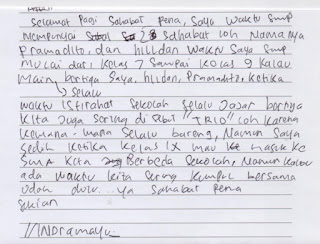 Selamat Pagi Sahabat Pena, Saya Waktu Smp
Mempunyai 2 Sdhabat loh Namanya
Pramadito, dan hilldan Waktu Saya Smp
Mulai dari Kelas 7 Sampai Kelas 9 Kalau
Main bertiga Saya, hildan, Pramadito, Ketika
Selalu
Waktu istirahat Sekolah Selalu Jajar barnya
Kita Juga Sering di Rbut "TRIO" loh Karena
Kemana-mana Selalu bareng, Namun Saya
Sedih Ketika Kelas IX mau masuk Ke
SMA Kita Berbeda Sekolah, Namun Kalau
ada Waktu Kita Sering Kumpul bersama
Udah dulu...ya Sahabat Pena
Sekian
//INdramayu